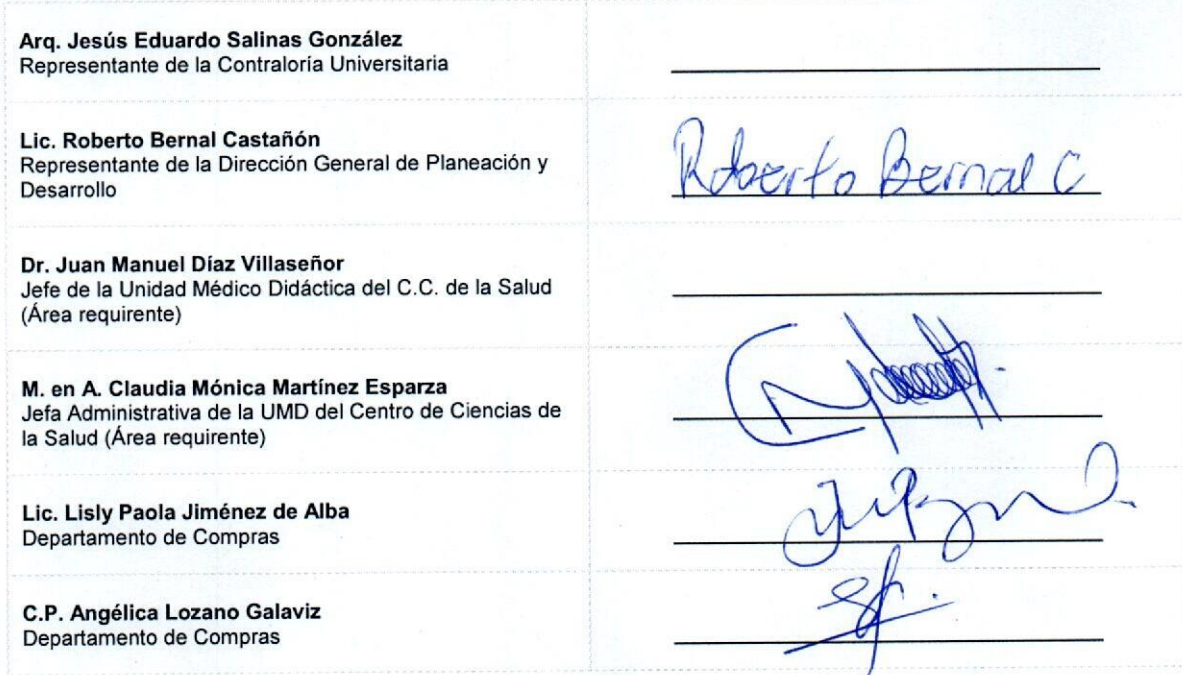 Arq. Jesús Eduardo Salinas González
Representante de la Contraloría Universitaria
Lic. Roberto Bernal Castañón
Representante de la Dirección General de Planeación y
Desarrollo
Roberto Bernal C
Dr. Juan Manuel Díaz Villaseñor
Jefe de la Unidad Médico Didáctica del C.C. de la Salud
(Área requirente)
M. en A. Claudia Mónica Martínez Esparza
Jefa Administrativa de la UMD del Centro de Ciencias de
la Salud (Área requirente)
Lic. Lisly Paola Jiménez de Alba
Departamento de Compras
C.P. Angélica Lozano Galaviz
Departamento de Compras